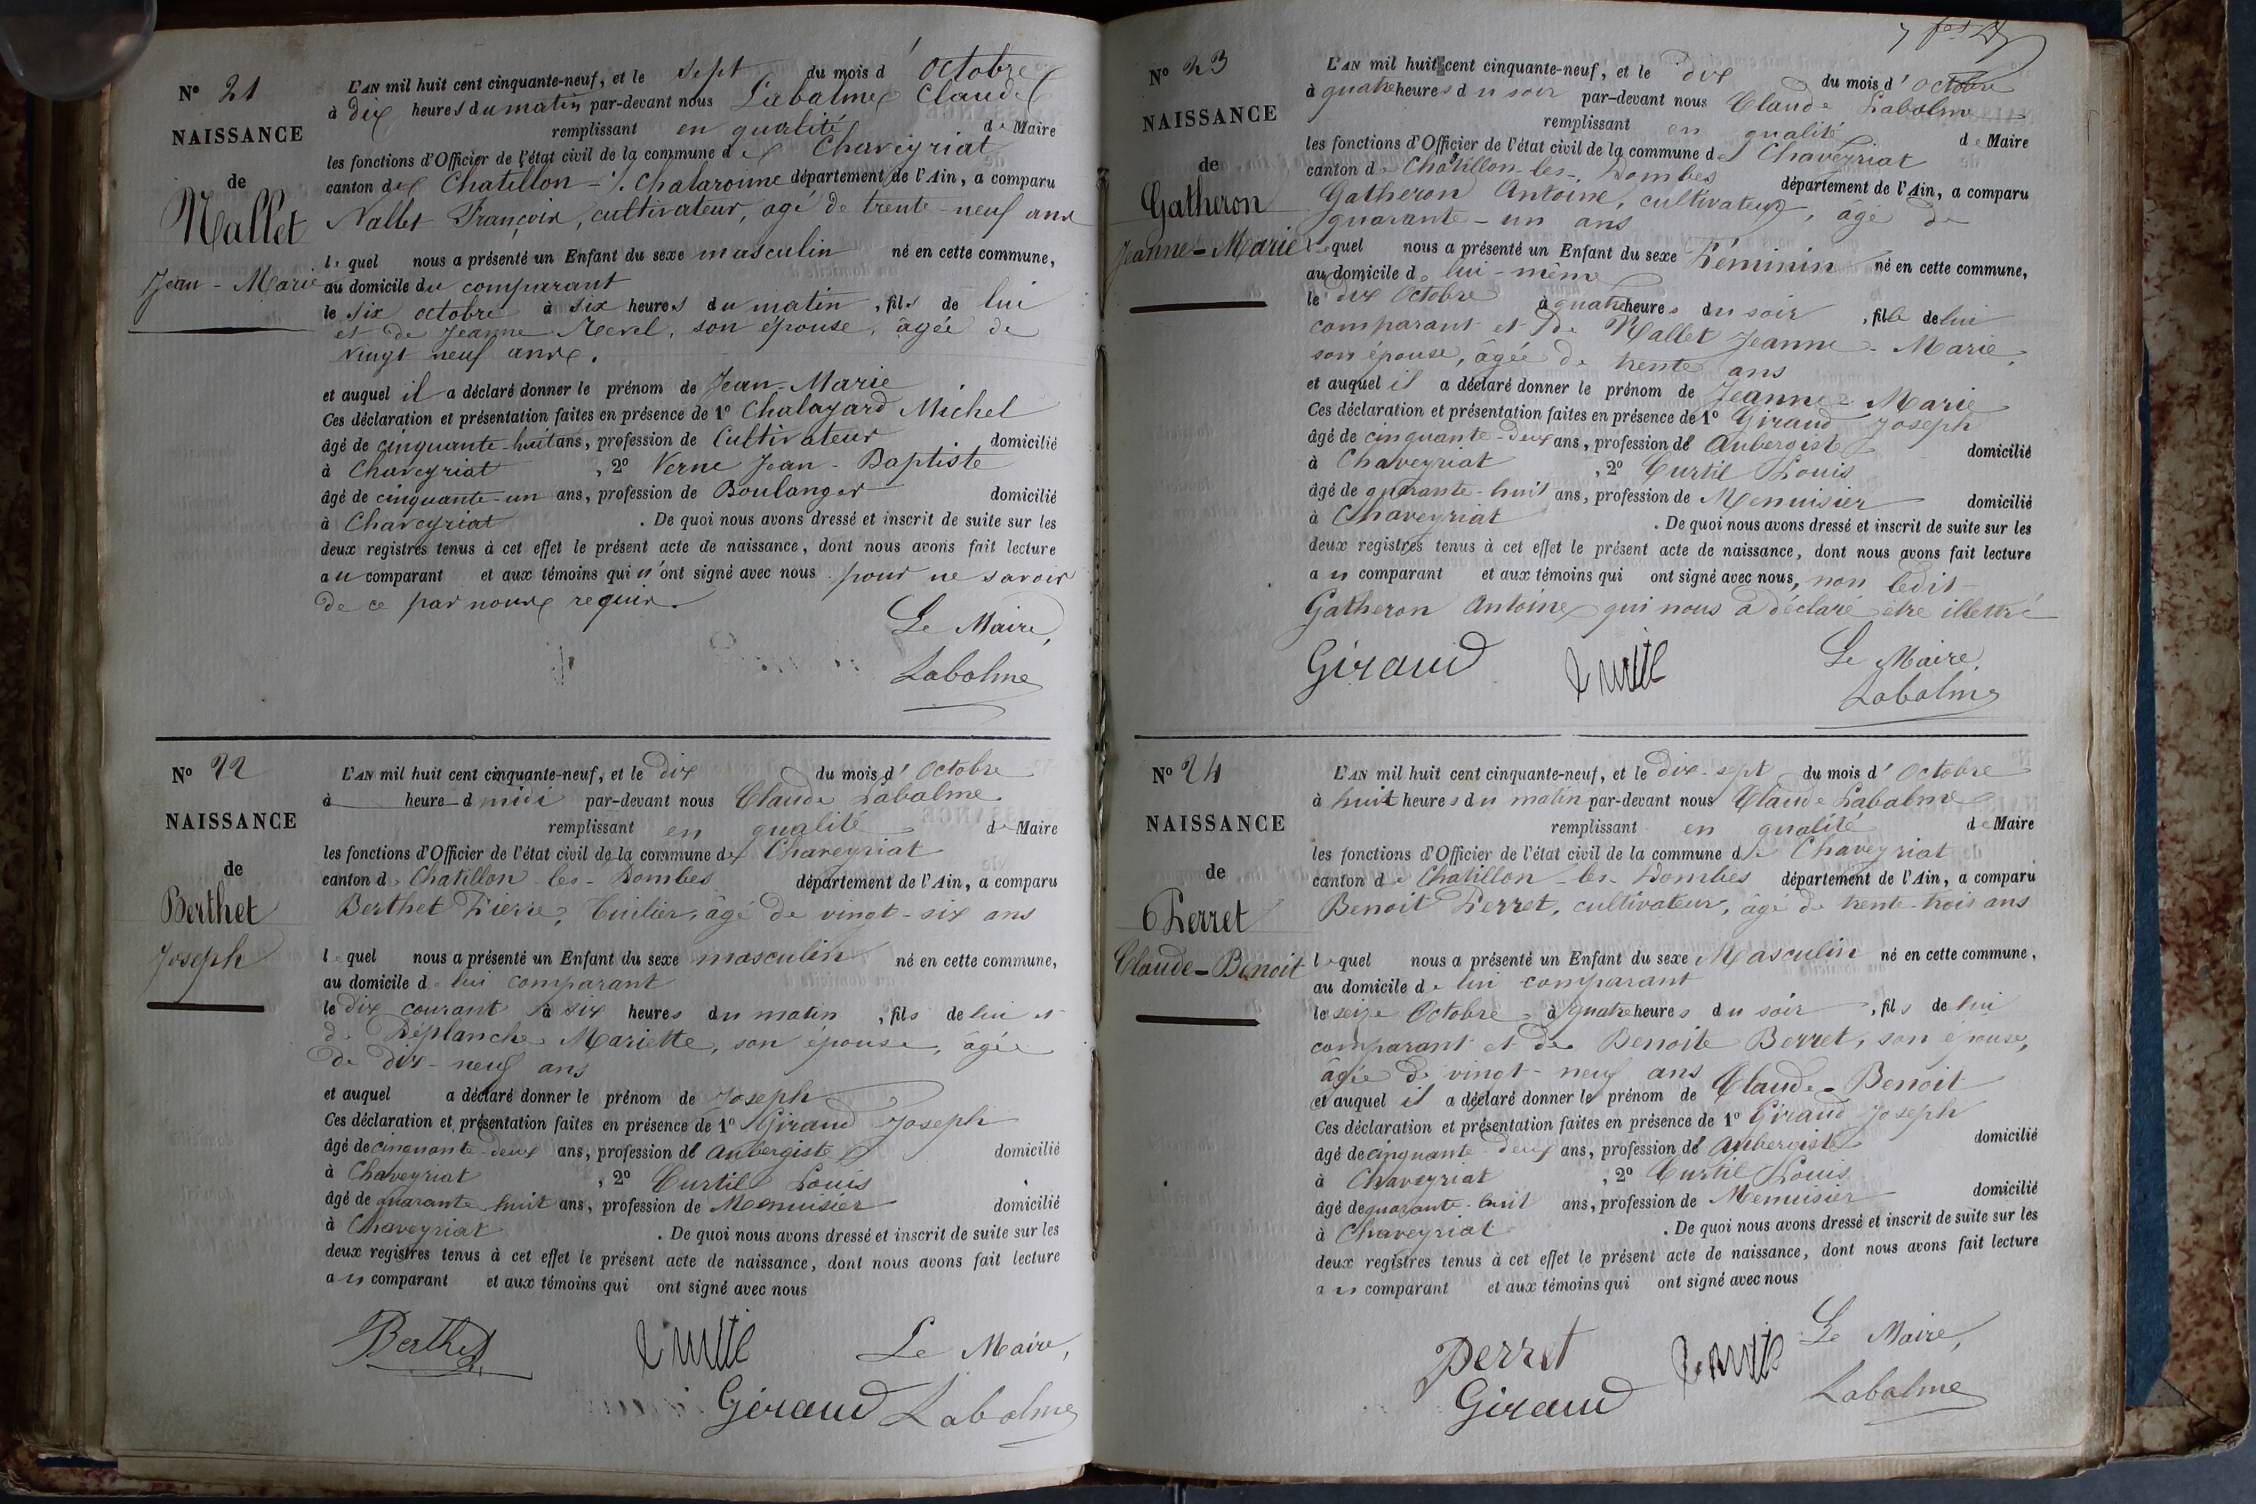 N° 21
NAISSANCE
de
Nallet
Jean - Marie
L'AN mil huit cent cinquante-neuf, et le sept du mois d' Octobre
à dix heures du matin par-devant nous Labalme Claude
remplissant en qualité de Maire
les fonctions d'Officier de l'état civil de la commune de Chaveyriat
canton de Chatillon - s/. Chalaronne département de l'Ain, a comparu
Nallet François, cultivateur, agé de trente-neuf ans
lequel nous a présenté un Enfant du sexe masculin né en cette commune,
au domicile du comparant
le six octobre à six heures du matin, fils de lui
et de Jeanne Revel, son épouse, âgée de
vingt neuf ans.
et auquel il a déclaré donner le prénom de Jean-Marie
Ces déclaration et présentation faites en présence de 1° Chalayard Michel
âgé de cinquante-huit ans, profession de Cultivateur domicilié
à Chaveyriat, 2° Verne Jean-Baptiste
âgé de cinquante-un ans, profession de Boulanger domicilié
à Chaveyriat. De quoi nous avons dressé et inscrit de suite sur les
deux registres tenus à cet effet le présent acte de naissance, dont nous avons fait lecture
au comparant et aux témoins qui n'ont signé avec nous pour ne savoir
de ce par nous requis.
Le Maire,
Labalme
N° 22
NAISSANCE
de
Berthet
Joseph
L'AN mil huit cent cinquante-neuf, et le dix du mois d' Octobre
à heure d midi par-devant nous Claude Labalme
remplissant en qualité de Maire
les fonctions d'Officier de l'état civil de la commune de Chaveyriat
canton de Chatillon-les-Dombes département de l'Ain, a comparu
Berthet Pierre, Tuilier, âgé de vingt-six ans
lequel nous a présenté un Enfant du sexe masculin né en cette commune,
au domicile de lui comparant
le dix courant à six heures du matin, fils de lui et
de Déplanche Mariette, son épouse, âgée
de dix-neuf ans
et auquel a déclaré donner le prénom de Joseph
Ces déclaration et présentation faites en présence de 1° Giraud Joseph
âgé de cinquante-deux ans, profession de Aubergiste domicilié
à Chaveyriat, 2° Curtil Louis
âgé de quarante-huit ans, profession de Menuisier domicilié
à Chaveyriat. De quoi nous avons dressé et inscrit de suite sur les
deux registres tenus à cet effet le présent acte de naissance, dont nous avons fait lecture
au comparant et aux témoins qui ont signé avec nous
Berthet
Le Maire,
Giraud Labalme
N° 23
NAISSANCE
de
Gatheron
Jeanne-Marie
L'AN mil huit cent cinquante-neuf, et le dix du mois d' Octobre
à quatre heures du soir par-devant nous Claude Labalme
remplissant en qualité de Maire
les fonctions d'Officier de l'état civil de la commune de Chaveyriat
canton de Chatillon-les-Dombes département de l'Ain, a comparu
Gatheron Antoine, cultivateur, âgé de
quarante-un ans
lequel nous a présenté un Enfant du sexe Féminin né en cette commune,
au domicile de lui-même
le dix Octobre à quatre heures du soir, fille de lui
comparant et de Nallet Jeanne-Marie,
son épouse, âgée de trente ans
et auquel il a déclaré donner le prénom de Jeanne-Marie
Ces déclaration et présentation faites en présence de 1° Giraud Joseph
âgé de cinquante-deux ans, profession de Aubergiste domicilié
à Chaveyriat, 2° Curtil Louis
âgé de quarante-huit ans, profession de Menuisier domicilié
à Chaveyriat. De quoi nous avons dressé et inscrit de suite sur les
deux registres tenus à cet effet le présent acte de naissance, dont nous avons fait lecture
au comparant et aux témoins qui ont signé avec nous, non ledit
Gatheron Antoine qui nous a déclaré être illettré
Giraud
Le Maire,
Labalme
N° 24
NAISSANCE
de
Perret
Claude-Benoit
L'AN mil huit cent cinquante-neuf, et le dix-sept du mois d' Octobre
à huit heures du matin par-devant nous Claude Labalme
remplissant en qualité de Maire
les fonctions d'Officier de l'état civil de la commune de Chaveyriat
canton de Chatillon-les-Dombes département de l'Ain, a comparu
Benoit Perret, cultivateur, âgé de trente-trois ans
lequel nous a présenté un Enfant du sexe Masculin né en cette commune,
au domicile de lui comparant
le seize Octobre à quatre heures du soir, fils de lui
comparant et de Benoite Berret, son épouse,
âgée de vingt-neuf ans
et auquel il a déclaré donner le prénom de Claude-Benoit
Ces déclaration et présentation faites en présence de 1° Giraud Joseph
âgé de cinquante-deux ans, profession de Aubergiste domicilié
à Chaveyriat, 2° Curtil Louis
âgé de quarante-huit ans, profession de Menuisier domicilié
à Chaveyriat. De quoi nous avons dressé et inscrit de suite sur les
deux registres tenus à cet effet le présent acte de naissance, dont nous avons fait lecture
au comparant et aux témoins qui ont signé avec nous
Perret Le Maire,
Giraud Labalme